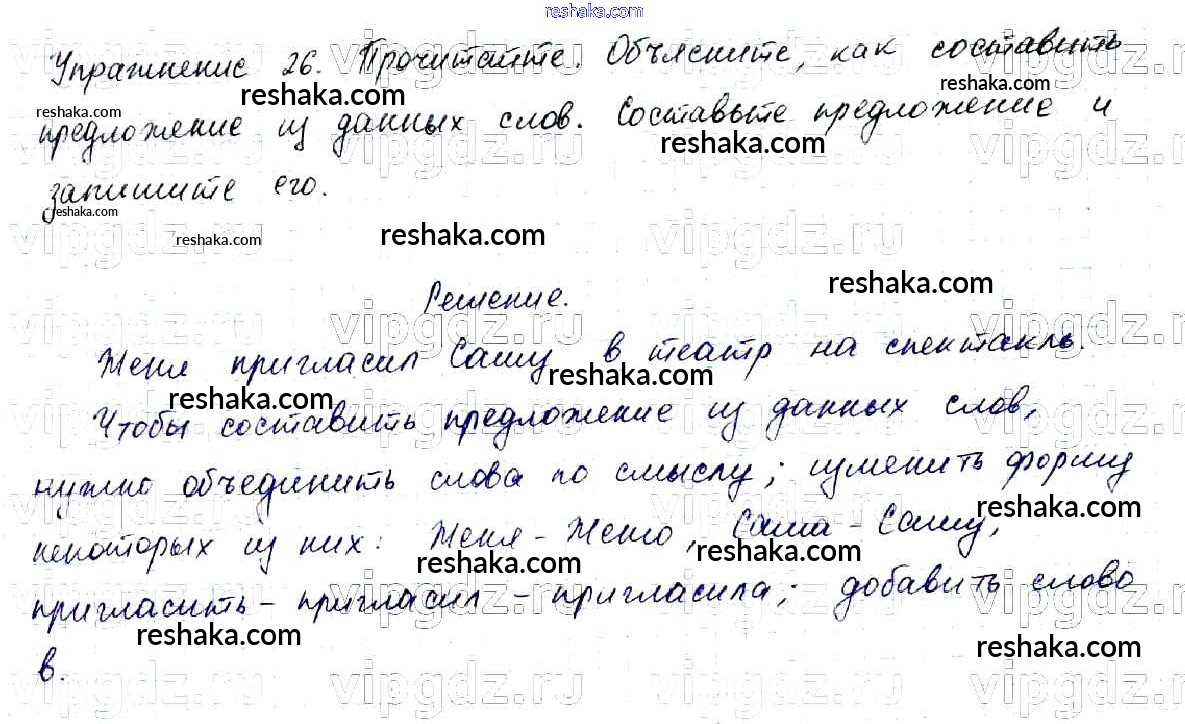 reshaka.com
Упражнение 26. Прочитайте. Объясните, как составить
reshaka.com
reshaka.com
reshaka.com
предложение из данных слов. Составьте предложение и
reshaka.com
vipgdz.ru vipgdz.ru vipgdz.ru
запишите его.
reshaka.com
reshaka.com
reshaka.com
vipgdz.ru vipgdz.ru vipgdz.ru
reshaka.com
Решение.
vipgdz.ru vipgdz.ru vipgdz.ru
Женя пригласил Сашу в театр на спектакль.
reshaka.com
reshaka.com
Чтобы составить предложение из данных слов,
vipgdz.ru vipgdz.ru vipgdz.ru
нужно объединить слова по смыслу; изменить форму
reshaka.com
vipgdz.ru vipgdz.ru vipgdz.ru
некоторых из них: Женя - Женю, Саша - Сашу,
reshaka.com
reshaka.com
пригласить - пригласил - пригласила; добавить слово
vipgdz.ru vipgdz.ru vipgdz.ru
reshaka.com
reshaka.com
в.
vipgdz.ru vipgdz.ru vipgdz.ru